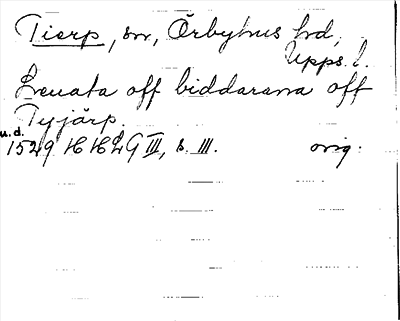 Tierp, sn, Örbyhus hd,
Upps. l.
Leuata off biddarana off
Tyjärp.
u.d.
1529 HH2 G III, s. III. orig.